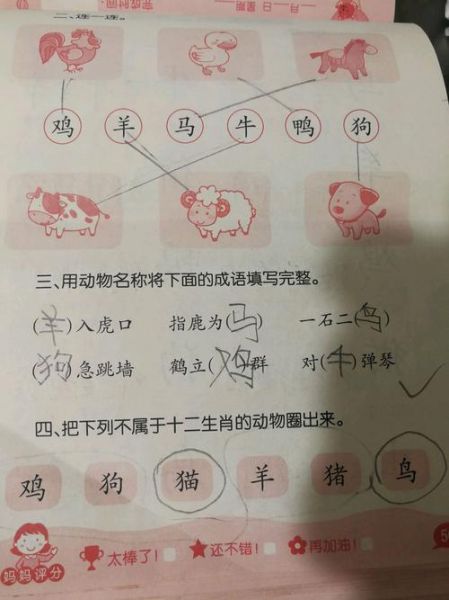 完成时间: 月 日 星期
二、连一连。
鸡 羊 马 牛 鸭 狗
三、用动物名称将下面的成语填写完整。
(羊)入虎口 指鹿为(马) 一石二(鸟)
(狗)急跳墙 鹤立(鸡)群 对(牛)弹琴
四、把下列不属于十二生肖的动物圈出来。
鸡 狗 猫 羊 猪 鸟
妈妈评分 太棒了! 还不错! 再加油!